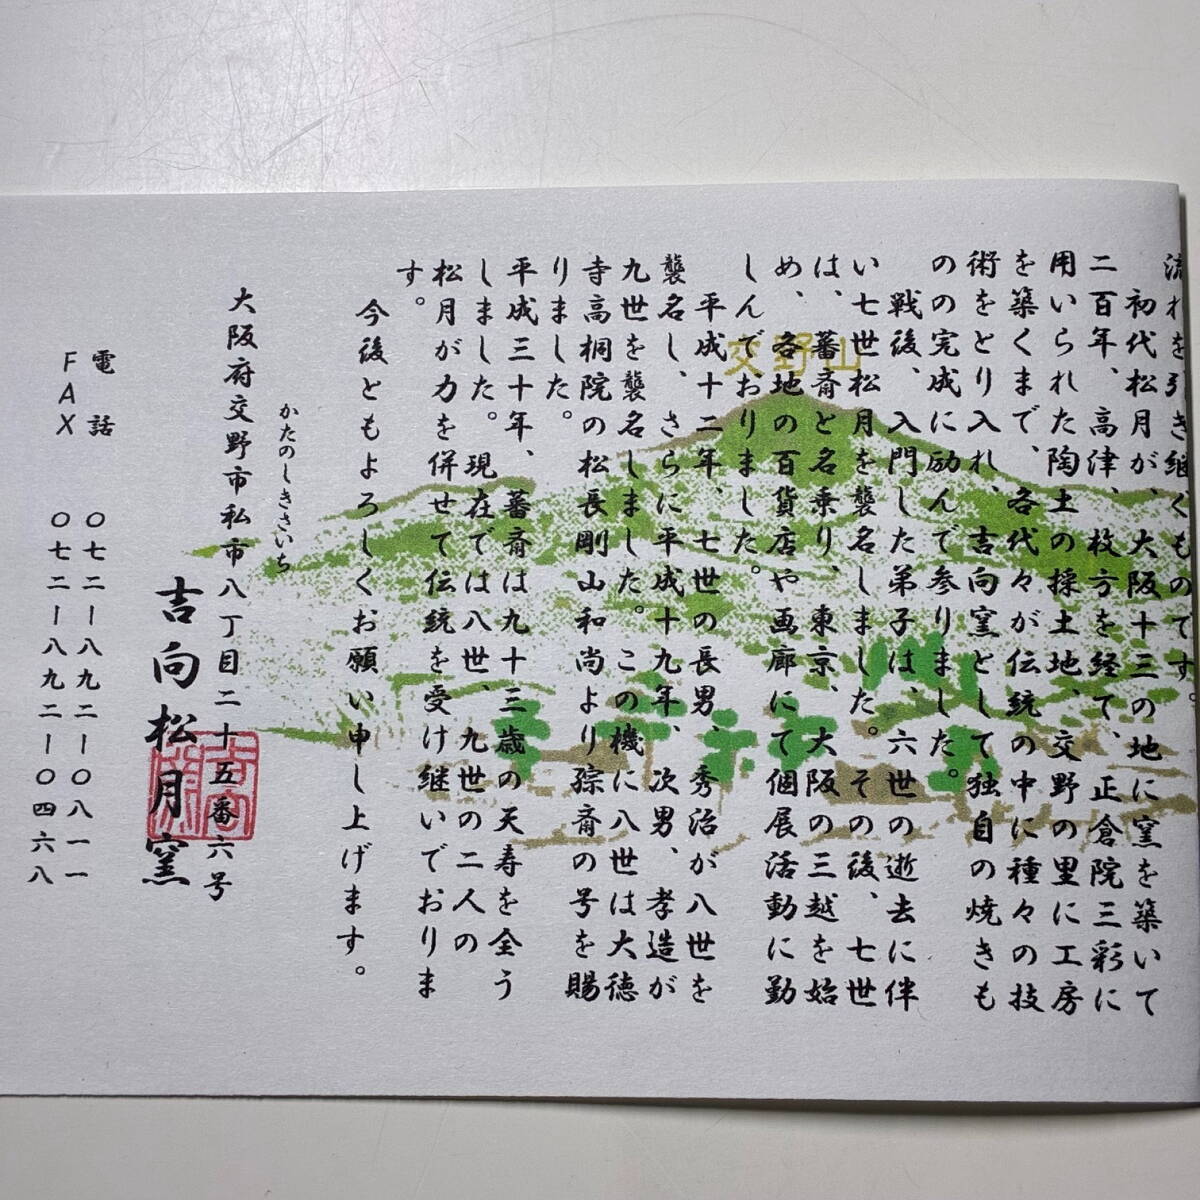 流れを引き継ぐものです。
初代松月が、大阪十三の地に窯を築いて
二百年、高津、枚方を経て、正倉院三彩に
用いられた陶土の採土地、交野の里に工房
を築くまで、各代々が伝統の中に種々の技
術をとり入れ、吉向窯として独自の焼きも
のの完成に励んで参りました。
戦後、入門した弟子は、六世の逝去に伴
い七世松月を襲名しました。その後、七世
は、蕃斎と名乗り、東京、大阪の三越を始
め、各地の百貨店や画廊にて個展活動に勤
しんでおりました。
平成十二年、七世の長男、秀治が八世を
襲名し、さらに平成十九年、次男、孝造が
九世を襲名しました。この機に八世は大徳
寺高桐院の松長剛山和尚より孮斎の号を賜
りました。
平成三十年、蕃斎は九十三歳の天寿を全う
しました。現在では八世、九世の二人の
松月が力を併せて伝統を受け継いでおりま
す。
今後ともよろしくお願い申し上げます。
かたのしきさいち
大阪府交野市私市八丁目二十五番六号
吉向松月窯
電話 〇七二ー八九二ー〇八一一
FAX 〇七二ー八九二ー〇四六八
交野山